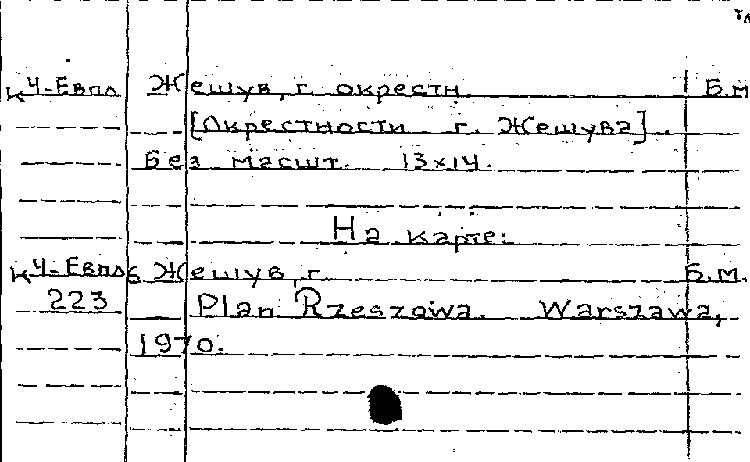 К4-Евпл Жешув, г. окрестн. Б.м
[Окрестности г. Жешува].
Без масшт. 13х14.
На карте:
К4-Евпл6 Жешув, г. Б.м.
223 Plan Rzeszowa. Warszawa,
1970.